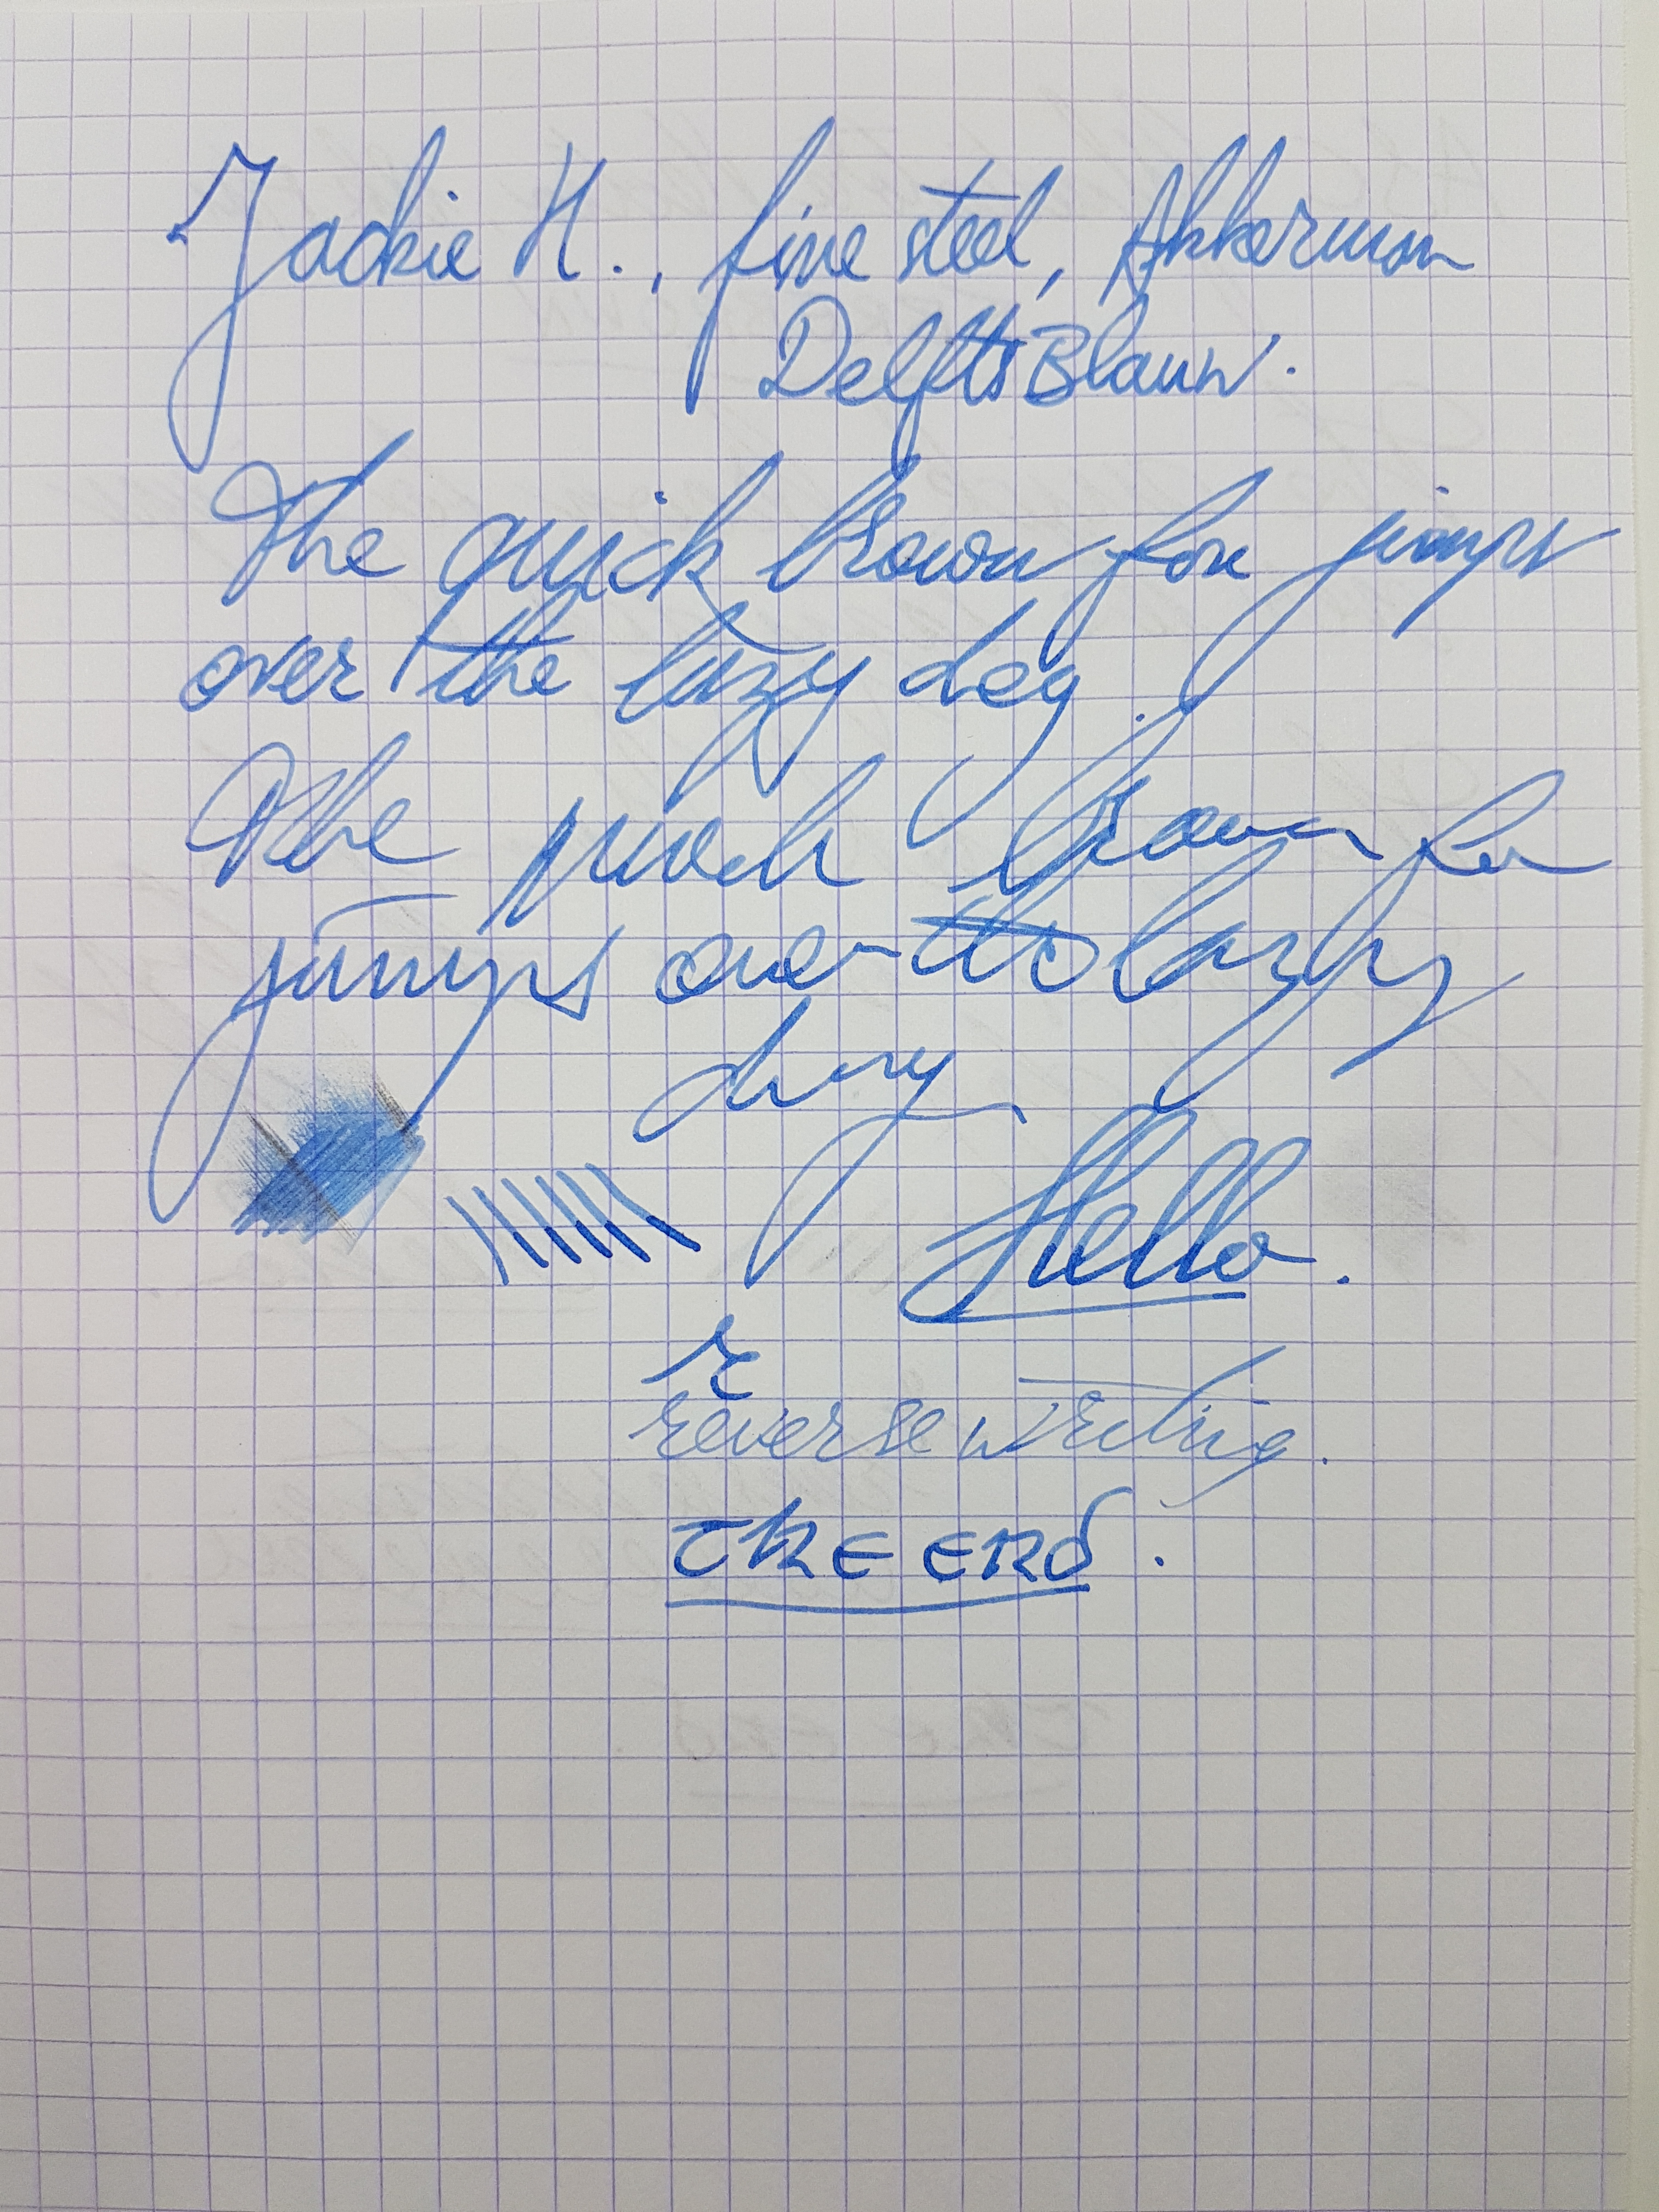 Jackie H., fine steel, Akkerman
Delfts Blauw.
The quick brown fox jumps
over the lazy dog.
The quick brown fox
jumps over the lazy
dog
Hello.
r
reverse writing.
The End.